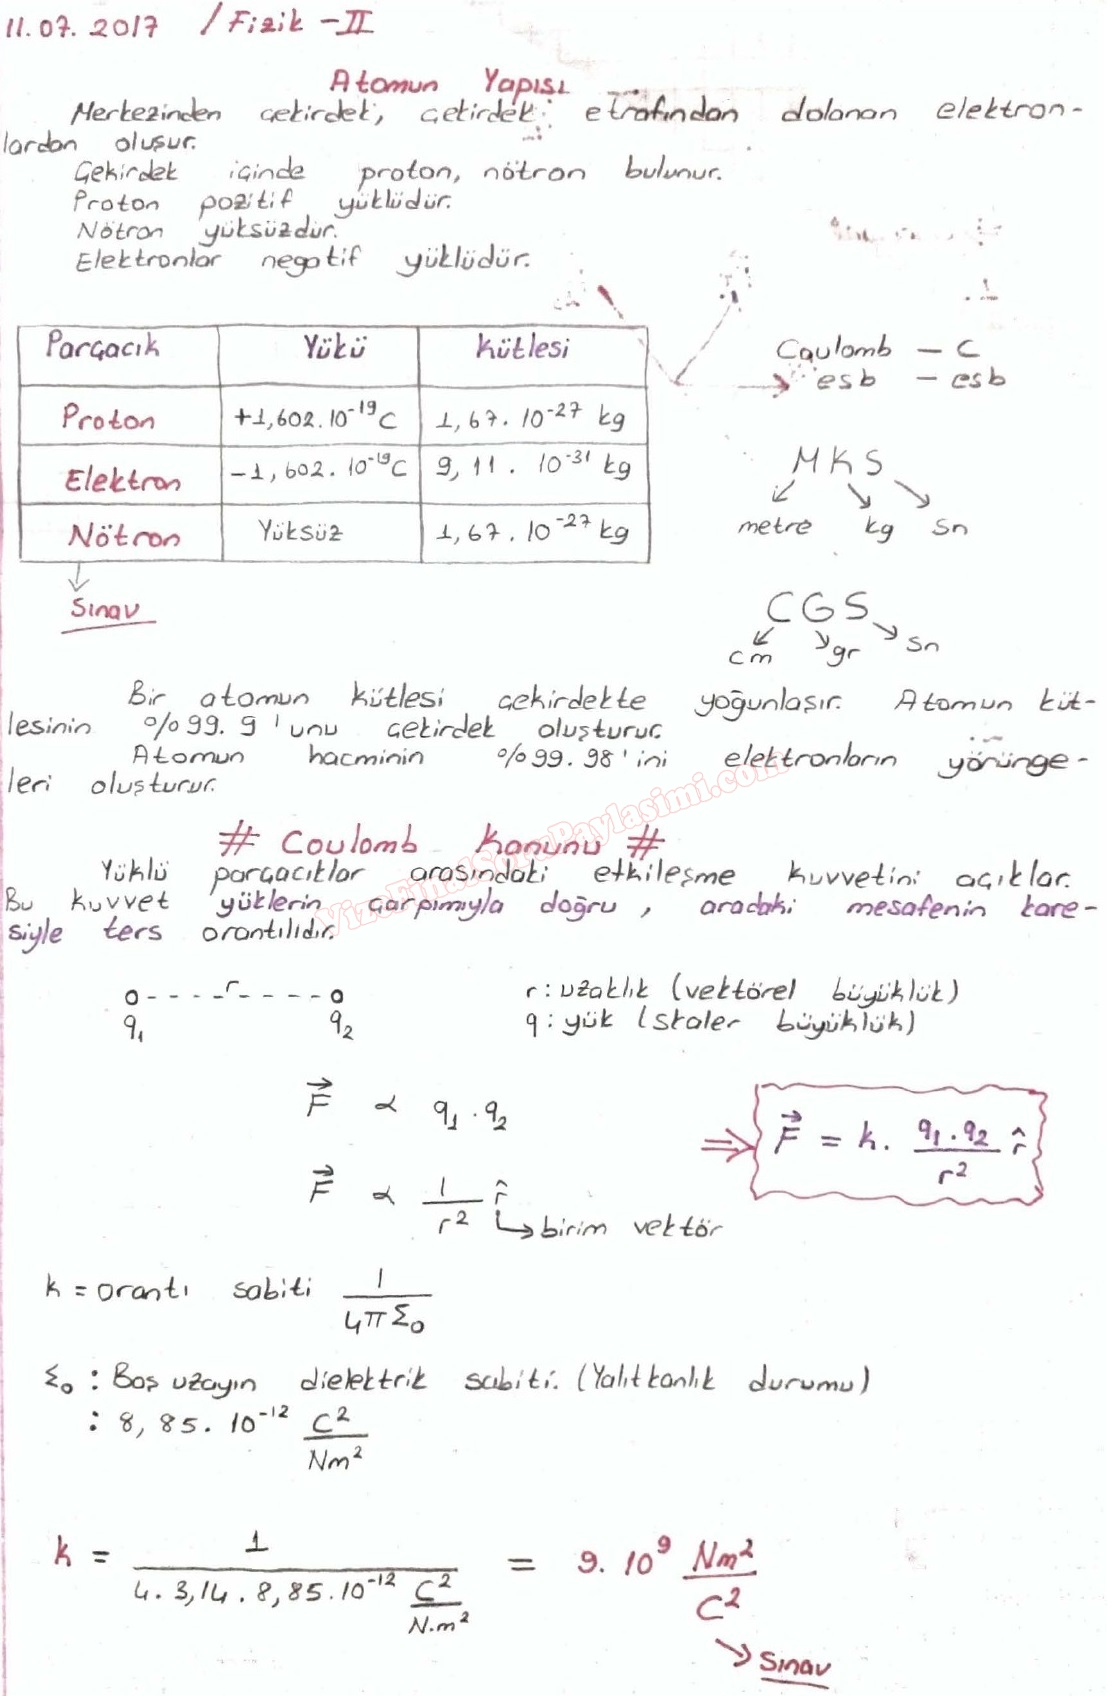 11.07.2017 / Fizik -II
Atomun Yapısı
Merkezinden çekirdek, çekirdek etrafından dolanan elektron-
lardan oluşur.
Çekirdek içinde proton, nötron bulunur.
Proton pozitif yüklüdür.
Nötron yüksüzdür.
Elektronlar negatif yüklüdür.
Parçacık Yükü Kütlesi
Proton +1,602.10⁻¹⁹C 1,67.10⁻²⁷ kg
Elektron -1,602.10⁻¹⁹C 9,11.10⁻³¹ kg
Nötron Yüksüz 1,67.10⁻²⁷ kg
Sınav
Coulomb - C
esb - esb
MKS
metre kg Sn
CGS
cm gr Sn
Bir atomun kütlesi çekirdekte yoğunlaşır. Atomun küt-
lesinin %99.9'unu çekirdek oluşturur.
Atomun hacminin %99.98'ini elektronların yörünge-
leri oluşturur.
# Coulomb Kanunu #
Yüklü parçacıklar arasındaki etkileşme kuvvetini açıklar.
Bu kuvvet yüklerin çarpımıyla doğru, aradaki mesafenin kare-
siyle ters orantılıdır.
VizeFinalSoruPaylasimi.com
o - - - - r - - - - o
q₁ q₂
r : uzaklık (vektörel büyüklük)
q : yük (skaler büyüklük)
F⃗ ∝ q₁ . q₂
F⃗ ∝ 1/r² r̂
birim vektör
⇒ F⃗ = k . q₁.q₂/r² r̂
k = orantı sabiti 1/4πƐ₀
Ɛ₀ : Boş uzayın dielektrik sabiti. (Yalıtkanlık durumu)
: 8,85.10⁻¹² C²/Nm²
k = 1/(4.3,14.8,85.10⁻¹² C²/N.m²) = 9.10⁹ Nm²/C²
Sınav